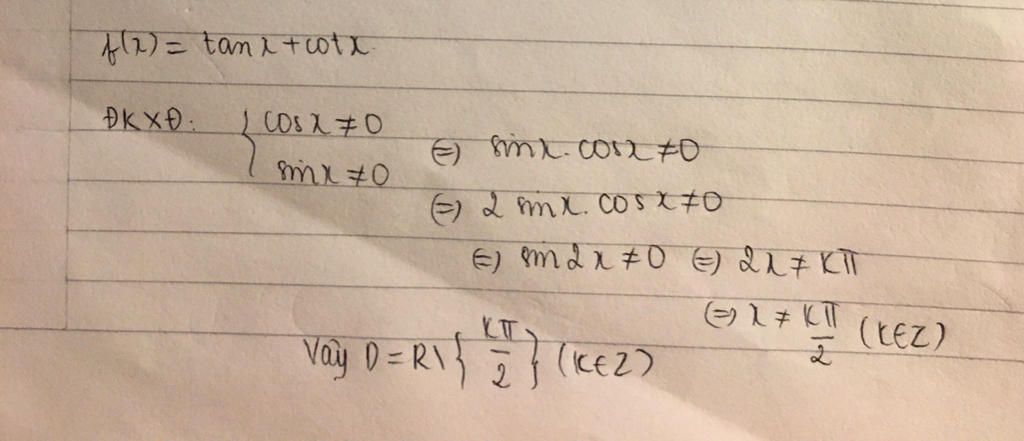 f(x) = tanx + cotx.
ĐKXĐ: { cosx ≠ 0
sinx ≠ 0
⇔ sinx.cosx ≠ 0
⇔ 2 sinx.cosx ≠ 0
⇔ sin2x ≠ 0 ⇔ 2x ≠ kπ
⇔ x ≠ kπ/2 (k∈Z)
Vậy D = R\{kπ/2} (k∈Z)